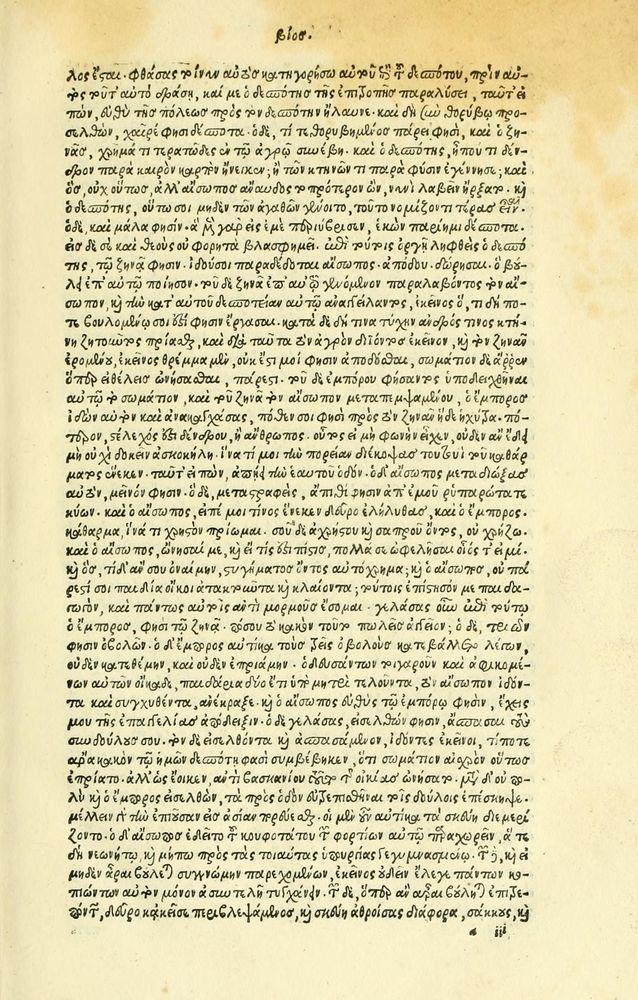 βίος.
λος ἔσται. φθάσας τοίνυν αὐτὸς κατηγορήσω αὐτοῦ ἐπὶ τοῦ δεσπότου, πρὶν αὐ-
τὸς τοῦτ' αὐτὸ δράσῃ, καί με ὁ δεσπότης τῆς ἐπιτροπῆς παραλύσει, ταῦτ' εἰ-
πὼν, εὐθὺ τῆς πόλεως πρὸς τὸν δεσπότην ἤλαυνε. καὶ δὴ σὺν θορύβῳ προ-
σελθὼν, χαῖρέ φησι δέσποτα. ὁ δὲ, τί τεθορυβημένος πάρει φησί, καὶ ὁ ζη-
νᾶς, χρῆμά τι τερατῶδες ἐν τῷ ἀγρῷ συνέβη. καὶ ὁ δεσπότης, ἤπου τι δέν-
δρον παρὰ καιρὸν καρπὸν ἤνεικεν; ἢ τῶν κτηνῶν τι παρὰ φύσιν ἐγέννησε; καὶ
ὃς, οὐχ οὕτως, ἀλλ' αἴσωπος ἄναυδος τὸ πρότερον ὢν, νυνὶ λαβεῖν ἤρξατο. καὶ
ὁ δεσπότης, οὕτω σοι μηδὲν τῶν ἀγαθῶν γένοιτο, τοῦτο νομίζοντι τέρας εἶναι.
ὁ δὲ, καὶ μάλα φησίν. ἃ μὲν γὰρ εἰς ἐμὲ περιύβρισεν, ἑκὼν παρίημι δέσποτα.
εἰς δὲ σὲ καὶ θεοὺς οὐ φορητὰ βλασφημεῖ. ἐπὶ τούτοις ὀργῇ ληφθεὶς ὁ δεσπό
της, τῷ ζηνᾷ φησιν. ἰδού σοι παραδέδοται αἴσωπος. ἀπόδου. δώρησαι. ὃ βού-
λει ἐπ' αὐτῷ ποίησον. τοῦ δὲ ζηνᾶ ἐπ' αὐτῷ γενόμενον παραλαβόντος τὸν αἴ-
σωπον, καὶ τὴν κατ' αὐτοῦ δεσποτείαν αὐτῷ ἀναγγείλαντος, ἐκεῖνος δ', τι δή πο-
τε βουλομένῳ σοι ἐστί φησιν ἔργασαι. κατὰ δὲ δή τινα τύχην ἀνδρός τινος κτή-
νη ζητοῦντος πρίασθαι, καὶ διὰ ταῦτα τὸν ἀγρὸν διιόντος ἐκεῖνον, καὶ τὸν ζηνᾶν
ἐρομένου, ἐκεῖνος θρέμμα μὲν, οὐκ ἔστι μοι φησὶν ἀποδόσθαι, σωμάτιον δὲ ἄρρεν
ὅπερ εἰ θέλεις ὠνήσασθαι, πάρεστι. τοῦ δὲ ἐμπόρου φήσαντος ὑποδειχθῆναι
αὐτῷ τὸ σωμάτιον, καὶ τοῦ ζηνᾶ τὸν αἴσωπον μεταπεμψαμένου, ὁ ἔμπορος
ἰδὼν αὐτὸν καὶ ἀνακαγχάσας, πόθεν σοί φησι πρὸς τὸν ζηνᾶν ἥδε ἡ χύτρα. πό-
τερον, στέλεχός ἐστι δένδρου, ἢ ἄνθρωπος. οὗτος εἰ μὴ φωνὴν εἶχεν, οὐδὲν ἂν ἐδέ
μὴ οὐχὶ δοκεῖν ἀσκὸς κήλη. ἵνα τί μοι τὴν πορείαν διέκοψας τουτουὶ τοῦ καθάρ
ματος ἕνεκεν. ταῦτ' εἰπὼν, ἀπῄει τὴν ἑαυτοῦ ὁδόν. ὁ δ' αἴσωπος μεταδιώξας
αὐτὸν, μεῖνόν φησιν. ὁ δὲ, μεταστραφεὶς, ἄπιθί φησιν ἀπ' ἐμοῦ ῥυπαρώτατε
κύων. καὶ ὁ αἴσωπος, εἰπέ μοι τίνος ἕνεκεν δεῦρο ἐλήλυθας, καὶ ὁ ἔμπορος.
κάθαρμα, ἵνα τι χρηστὸν πρίωμαι. σοῦ δὲ ἀχρήστου καὶ σαπροῦ ὄντος, οὐ χρῄζω.
καὶ ὁ αἴσωπος, ὤνησαί με, καὶ εἴ τίς ἐστι πίστις, πολλά σε ὠφελῆσαι οἷός τ' εἰμί.
καὶ ὃς, τί δ' ἄν σου ὀναίμην, στυγήματος ὄντος αὐτόχρημα; καὶ ὁ αἴσωπος, οὐ πά
ρεστί σοι παιδία οἴκοι ἄτακτα καὶ κλαίοντα; τούτοις ἐπίστησόν με παιδα-
γωγὸν, καὶ πάντως αὐτοῖς ἀντὶ μορμοῦς ἔσομαι. γελάσας οὖν ἐπὶ τούτῳ
ὁ ἔμπορος, φησὶ τῷ ζηνᾷ. πόσου τὸ κακὸν τοῦτο πωλεῖς ἀγγεῖον; ὁ δὲ, τριῶν
φησιν ὀβολῶν. ὁ δ' ἔμπορος αὐτίκα τοὺς τρεῖς ὀβολοὺς κατεβάλλετο λέγων,
οὐδὲν κατεθέμην, καὶ οὐδὲν ἐπριάμην. ὁδευσάντων τοιγαροῦν καὶ ἀφικομέ-
νων αὐτῶν οἴκαδε, παιδάρια δύο ἔτι ὑπὸ μητρὶ τελοῦντα, τὸν αἴσωπον ἰδόν-
τα καὶ συγχυθέντα, ἀνέκραξε. καὶ ὁ αἴσωπος εὐθὺς τῷ ἐμπόρῳ φησὶν, ἔχεις
μου τῆς ἐπαγγελίας ἀπόδειξιν. ὁ δὲ γελάσας, εἰσελθών φησιν, ἄσπασαι τοὺς
συνδούλους σου. τὸν δὲ εἰσελθόντα καὶ ἀσπασάμενον, ἰδόντες ἐκεῖνοι, τί ποτε
ἄρα κακὸν τῷ ἡμῶν δεσπότῃ φασὶ συμβέβηκεν, ὅτι σωμάτιον αἰσχρὸν οὕτως
ἐπρίατο. ἀλλ' ὡς ἔοικεν, ἀντὶ βασκανίου τοῦτον τῆς οἰκίας ὠνήσατο. μετ' οὐ πο-
λὺ καὶ ὁ ἔμπορος εἰσελθὼν, τὰ πρὸς ὁδὸν εὐτρεπισθῆναι τοῖς δούλοις ἐπέσκηψε.
μέλλειν γὰρ τὴν ἐπιοῦσαν εἰς ἀσίαν πορεύεσθαι. οἱ μὲν οὖν αὐτίκα τὰ σκεύη διεμερί-
ζοντο. ὁ δ' αἴσωπος ἐδεῖτο τὸ κουφότατον τῶν φορτίων αὐτῷ παραχωρεῖν, ἅτε
δὴ νεωνήτῳ, καὶ μήπω πρὸς τὰς τοιαύτας ὑπουργίας γεγυμνασμένῳ. τῶν δὲ, καὶ εἰ
μηδὲν ἆραι βούλεται συγγνώμην παρεχομένων, ἐκεῖνος οὐδεῖν ἔλεγε πάντων κο-
πιώντων αὐτὸν μόνον ἀσυντελῆ τυγχάνειν. τῶν δὲ, ὅπερ ἂν ἆραι βούληται ἐπιτρε-
πόντων, δεῦρο κἀκεῖσε περιβλεψάμενος, καὶ σκεύη ἀθροίσας διάφορα, σάκκους, καὶ
a iii